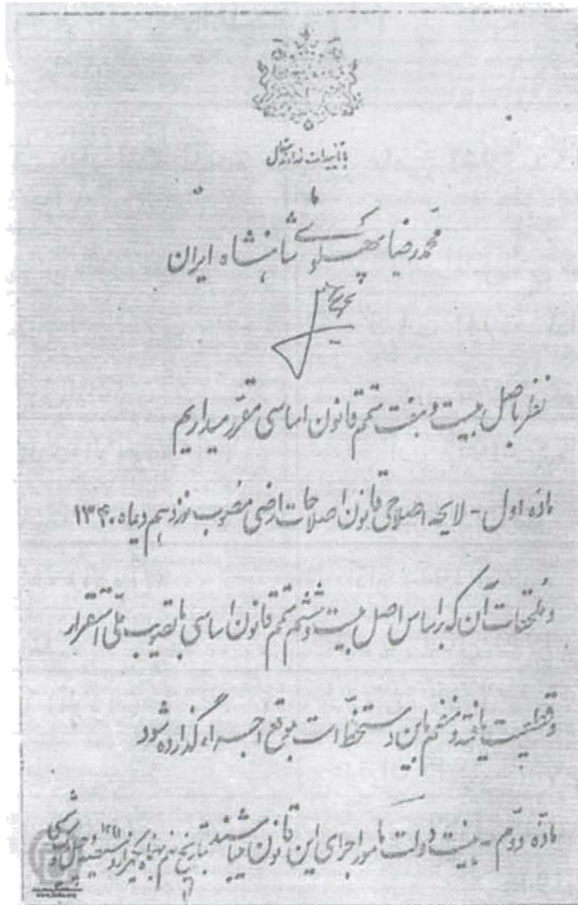 با تأییدات خداوند متعال
ما
محمدرضا پهلوی شاهنشاه ایران
نظر باصل بیست و هفت متمم قانون اساسی مقرر میداریم
ماده اول - لایحه اصلاحی قانون اصلاحات ارضی مصوب نوزدهم دیماه ۱۳۴۰
و ملحقات آن که براساس اصل بیست و ششم متمم قانون اساسی با تصویب ملی استقرار
و قطعیت یافته و منضم باین دستخط است بموقع اجراء گذارده شود
ماده دوم - هیئت دولت مأمور اجرای این قانون میباشند بتاریخ بهمن ماه یکهزار و سیصد و چهل و